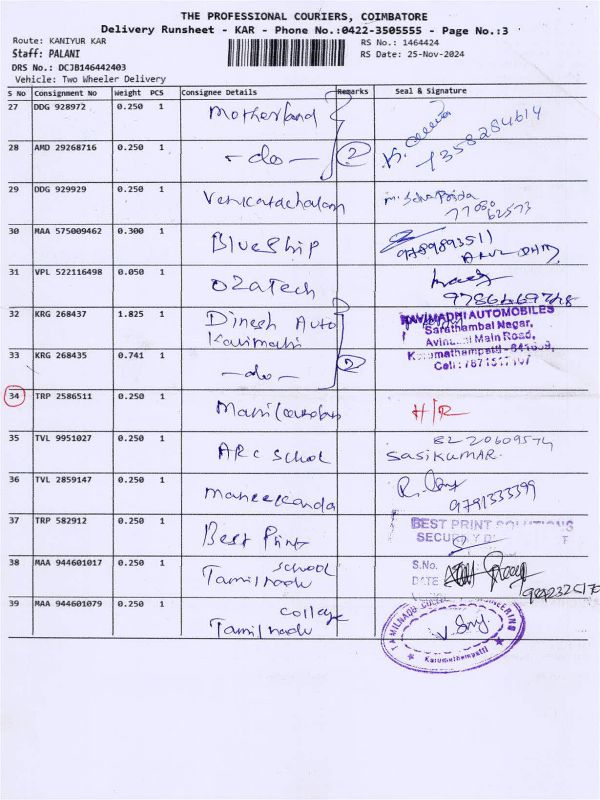 THE PROFESSIONAL COURIERS, COIMBATORE
Delivery Runsheet - KAR - Phone No.:0422-3505555 - Page No.:3
Route: KANIYUR KAR
RS No.: 1464424
Staff: PALANI
RS Date: 25-Nov-2024
DRS No.: DCJB146442403
Vehicle: Two Wheeler Delivery
S No Consignment No Weight PCS Consignee Details Remarks Seal & Signature
27 DDG 928972 0.250 1 Motherland
28 AMD 29268716 0.250 1 - do - 2
29 DDG 929929 0.250 1 Venkatachalam
30 MAA 575009462 0.300 1 BlueShip 9789893511
31 VPL 522116498 0.050 1 OZaTech
32 KRG 268437 1.825 1 Dinesh Auto KAVIMADHI AUTOMOBILES
Kavimathi Sarathambal Nagar,
Avinashi Main Road,
33 KRG 268435 0.741 1 - do - 2 Karumathampatti -
Cell :
34 TRP 2586511 0.250 1 H/R
35 TVL 9951027 0.250 1 ARC School
SASIKUMAR.
36 TVL 2859147 0.250 1 R.
9791333399
37 TRP 582912 0.250 1 Best Print BEST PRINT SOLUTIONS
38 MAA 944601017 0.250 1 school S.No.
Tamilnadu DATE
39 MAA 944601079 0.250 1 college TAMILNADU
Tamilnadu
Karumathampatti